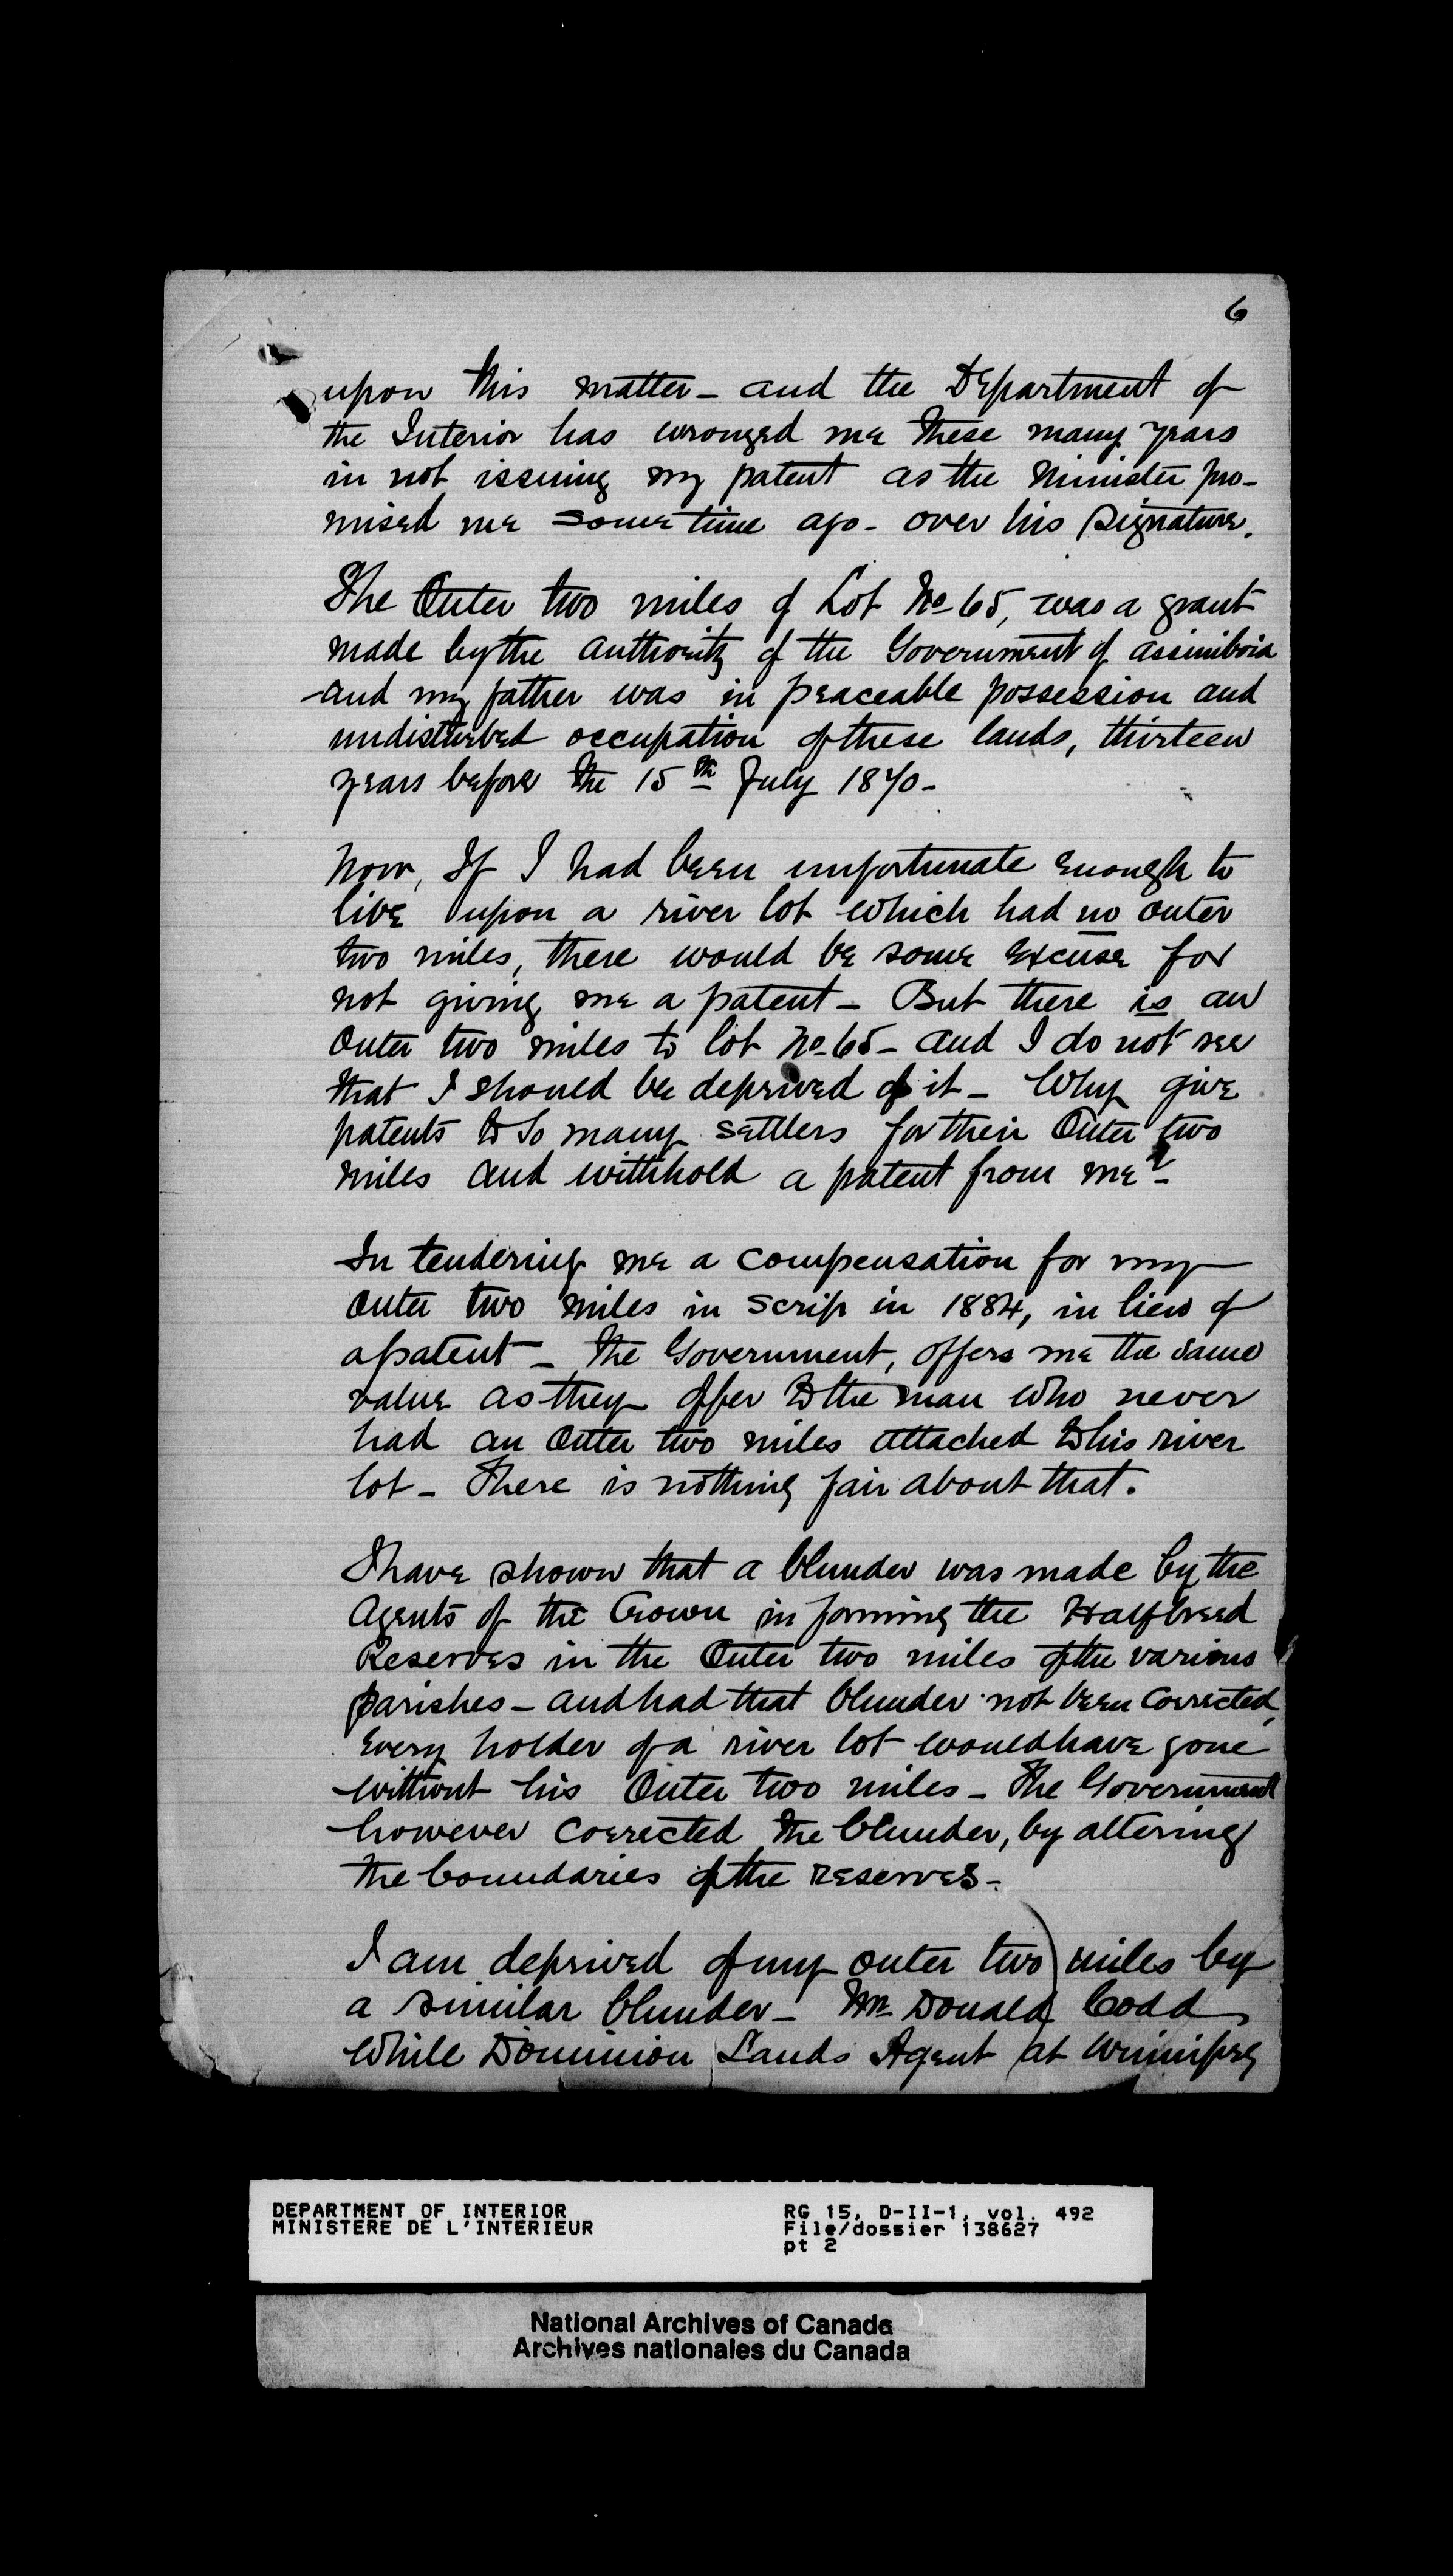 6
upon this matter - and the Department of
the Interior has wronged me these many years
in not issuing my patent as the Minister pro-
mised me some time ago - over his signature.
The Outer two miles of Lot No 65, was a grant
made by the authority of the Government of Assiniboia
and my father was in peaceable possession and
undisturbed occupation of these lands, thirteen
years before the 15th July 1870 -
Now, If I had been unfortunate enough to
live upon a river lot which had no outer
two miles, there would be some excuse for
not giving me a patent - But there is an
Outer two miles to lot No 65 - and I do not see
that I should be deprived of it - Why give
patents to so many settlers for their Outer two
miles and withhold a patent from me? -
In tendering me a compensation for my
outer two miles in scrip in 1884, in lieu of
a patent - The Government, offers me the same
value as they offer to the man who never
had an Outer two miles attached to his river
lot - There is nothing fair about that.
I have shown that a blunder was made by the
Agents of the Crown in forming the Halfbreed
Reserves in the Outer two miles of the various
parishes - and had that blunder not been corrected,
every holder of a river lot would have gone
without his Outer two miles - The Government
however corrected the blunder, by altering
the boundaries of the reserves -
I am deprived of my outer two miles by
a similar blunder - Mr Donald Codd
while Dominion Lands Agent at Winnipeg
DEPARTMENT OF INTERIOR
MINISTERE DE L'INTERIEUR
RG 15, D-II-1, vol. 492
File/dossier 138627
pt 2
National Archives of Canada
Archives nationales du Canada